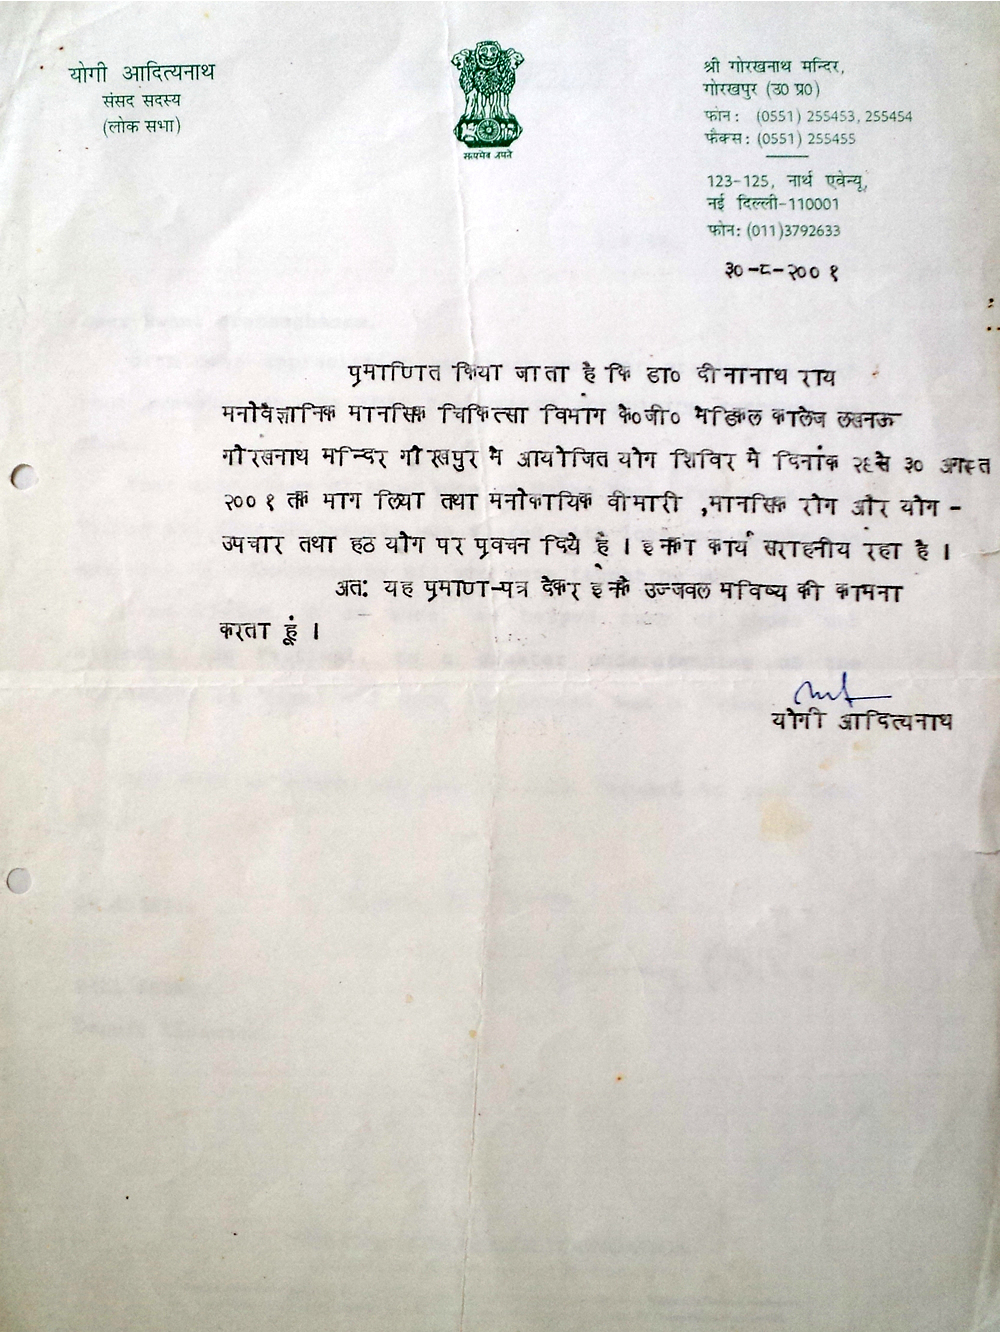 योगी आदित्यनाथ
संसद सदस्य
(लोक सभा)
सत्यमेव जयते
श्री गोरखनाथ मन्दिर,
गोरखपुर (उ० प्र०)
फोन : (0551) 255453, 255454
फैक्स : (0551) 255455
123-125, नार्थ एवेन्यू,
नई दिल्ली-110001
फोन: (011)3792633
३०-८-२००१
प्रमाणित किया जाता है कि डा० दीनानाथ राय
मनोवैज्ञानिक मानसिक चिकित्सा विभाग के०जी० मेडिकल कालेज लखनऊ
गोरखनाथ मन्दिर गोरखपुर मे आयोजित योग शिविर मे दिनांक २६से ३० अगस्त
२००१ तक भाग लिया तथा मनोकायिक वीमारी ,मानसिक रोग और योग -
उपचार तथा हठ योग पर प्रवचन दिये हैं । इनका कार्य सराहनीय रहा है ।
अत: यह प्रमाण-पत्र देकर इनके उज्जवल भविष्य की कामना
करता हूं ।
योगी आदित्यनाथ